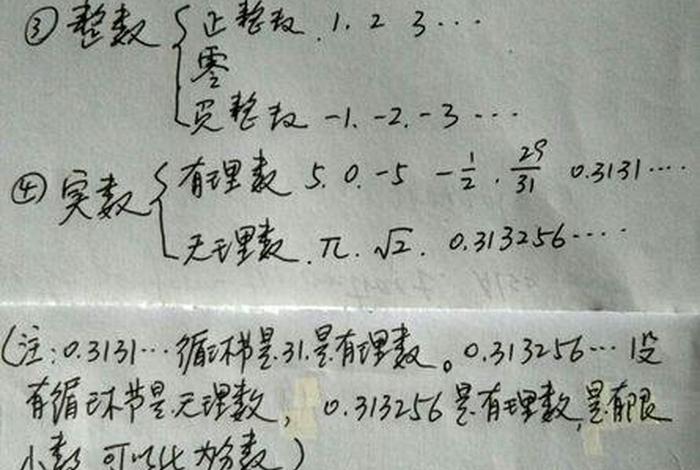 ③整数 正整数 . 1. 2 3 …
零
负整数 -1. -2. -3 …
④实数 有理数 5. 0. -5 -1/2 . 29/31 0.3131 ….
无理数 . π. √2. 0.313256 ….
(注:0.3131…循环节是.31.是有理数。0.313256…没
有循环节是无理数, 0.313256是有理数,是有限
小数 可以化为分数)